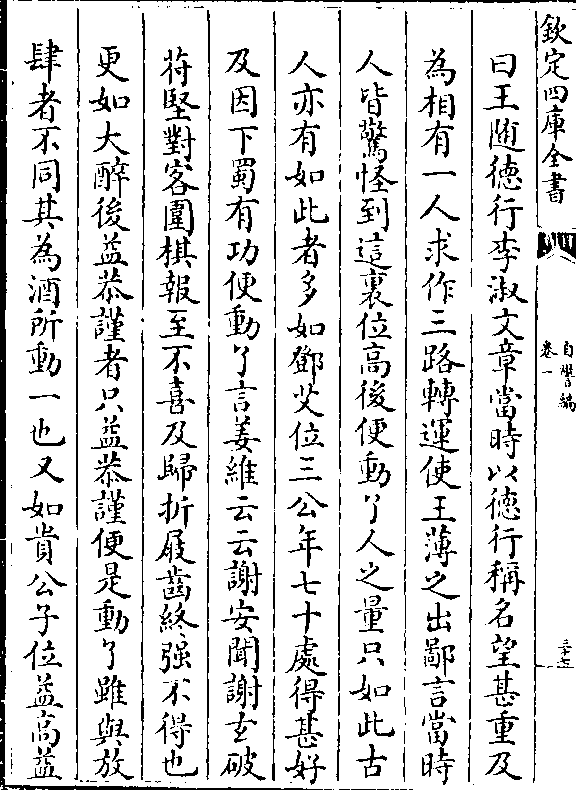 欽定四庫全書
自警編
卷一
三十七
曰王随德行李淑文章當時以德行稱名望甚重及
為相有一人求作三路轉運使王薄之出鄙言當時
人皆驚怪到這裏位高後便動了人之量只如此古
人亦有如此者多如鄧艾位三公年七十處得甚好
及因下蜀有功便動了言姜維云云謝安聞謝玄破
苻堅對客圍棋報至不喜及歸折屐齒終强不得也
更如大醉後益恭謹者只益恭謹便是動了雖與放
肆者不同其為酒所動一也又如貴公子位益高益